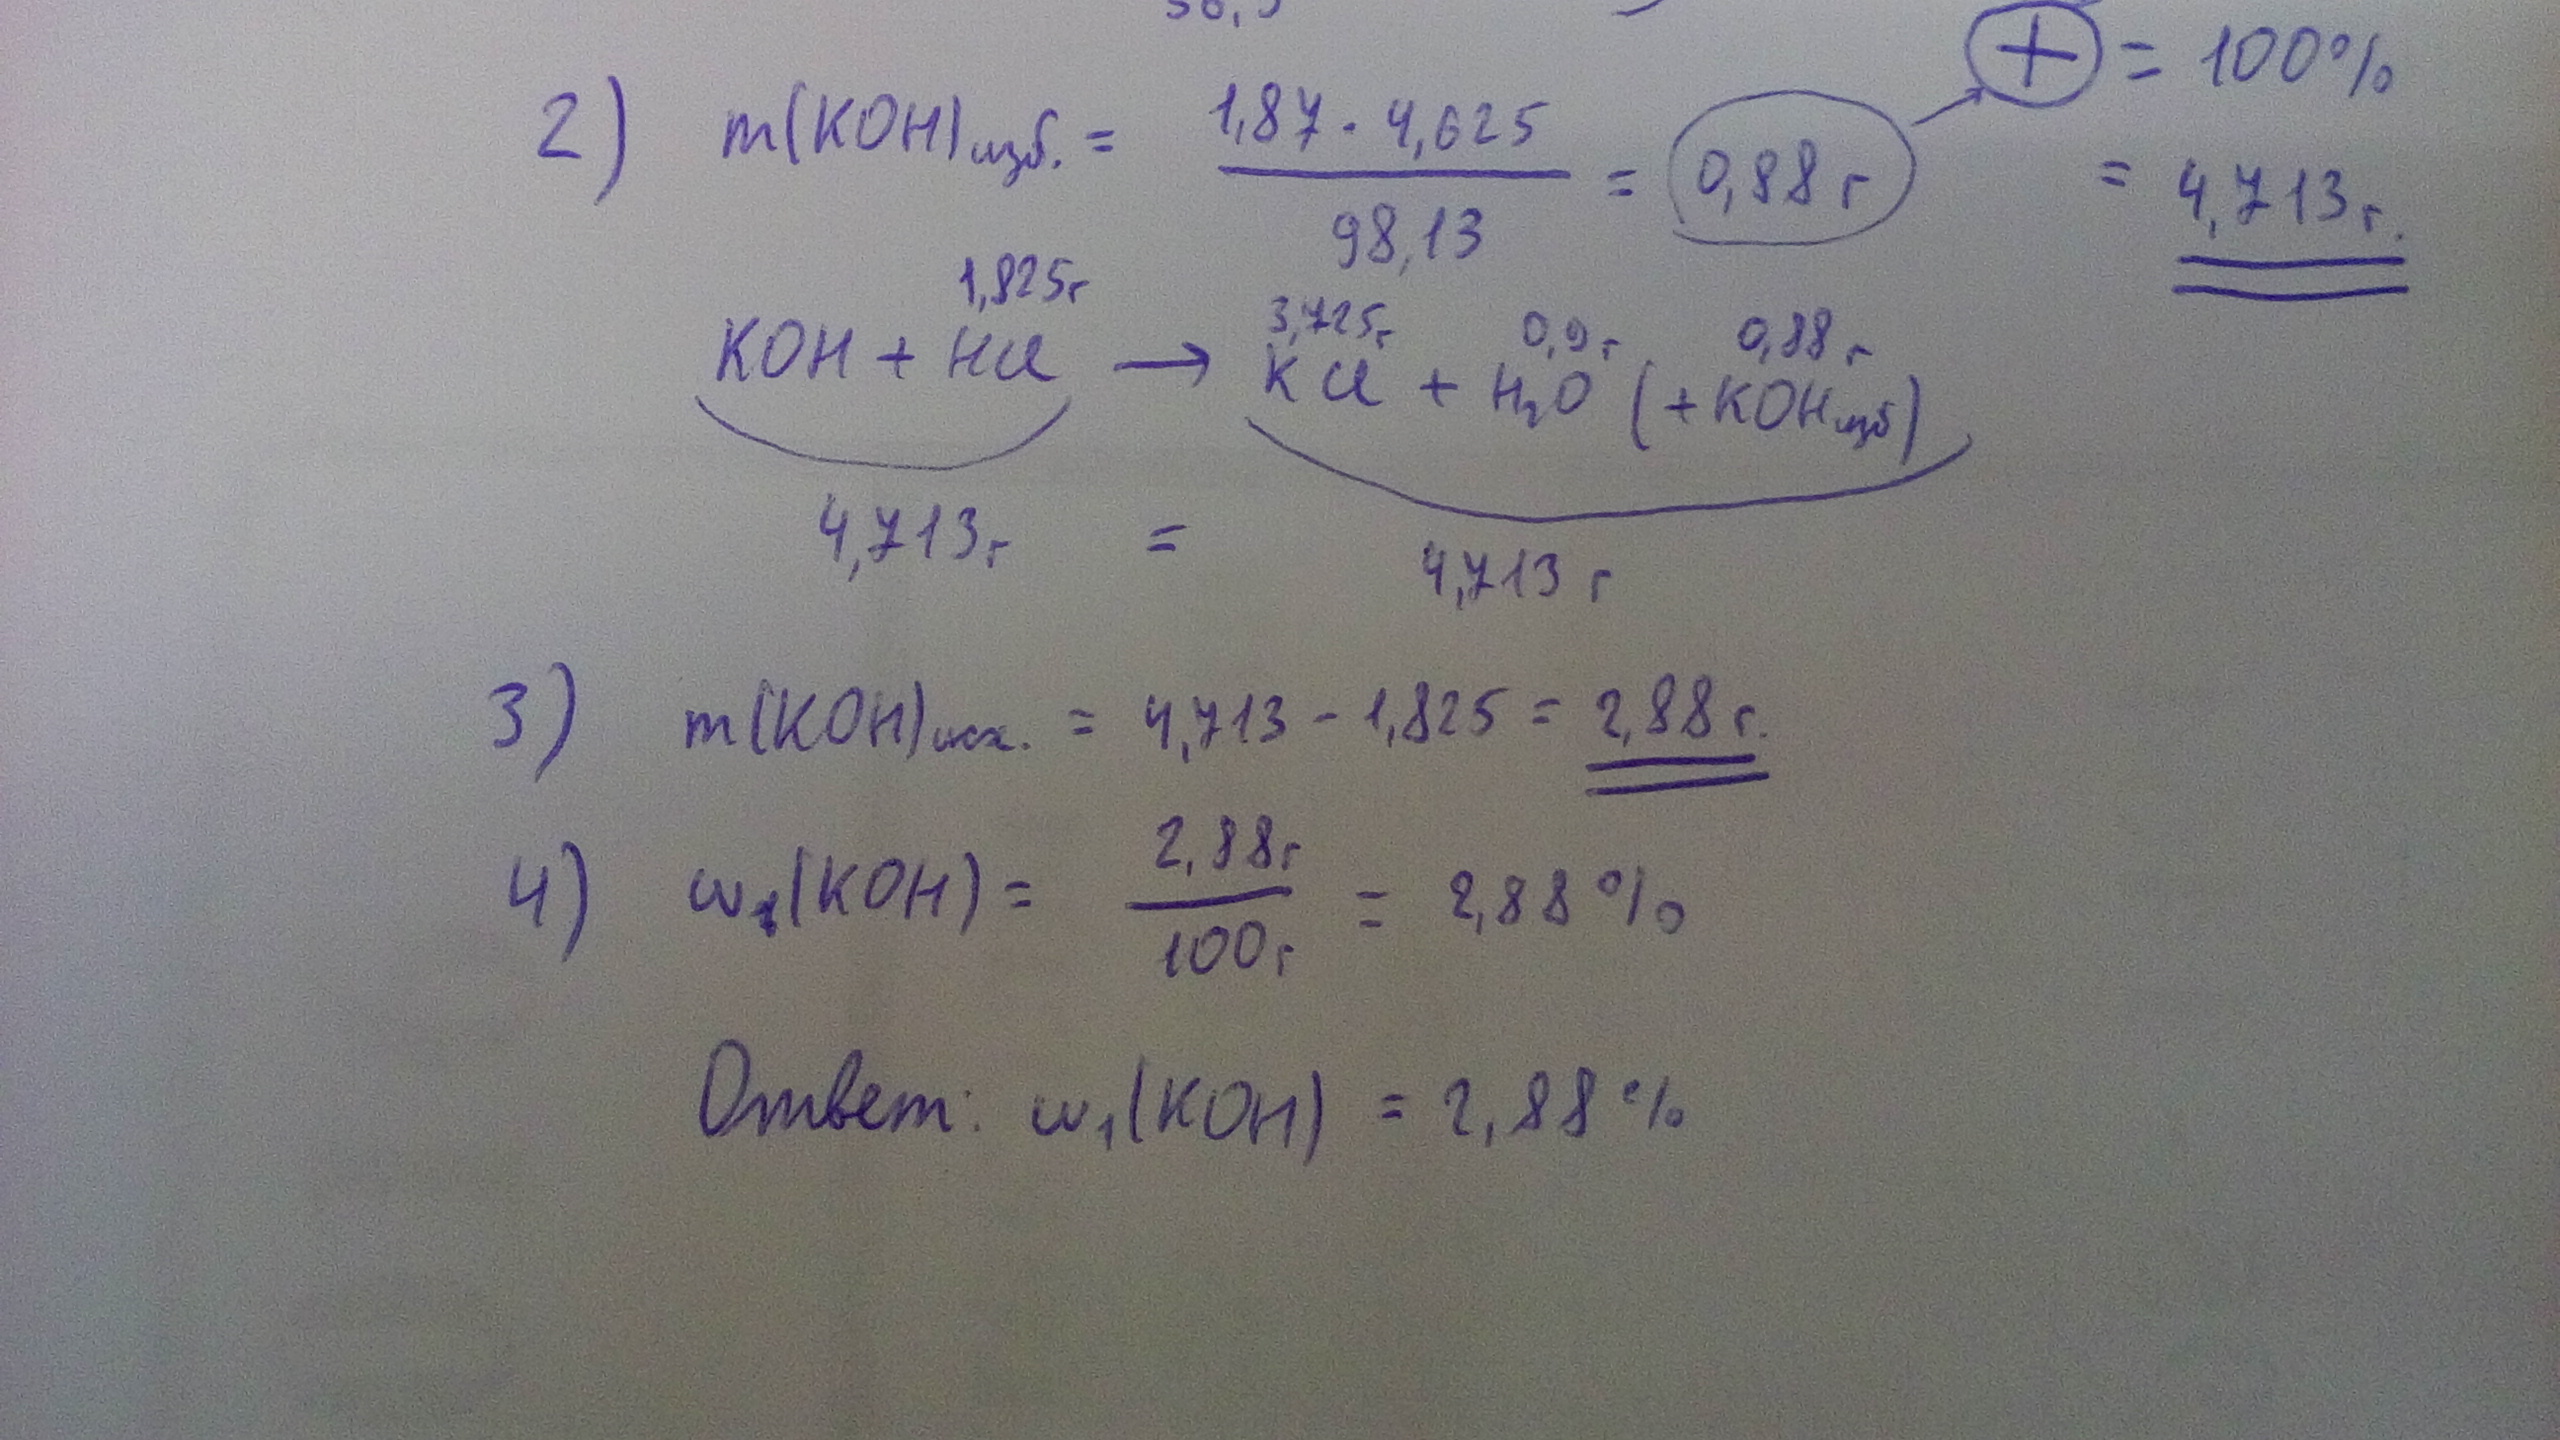 = 100%
2) m(KOH)изб. = 1,87 · 4,625 / 98,13 = 0,88 г
= 4,713 г.
1,825г 3,725г 0,9 г 0,88 г
KOH + HCl → KCl + H₂O (+ KOHизб)
4,713г = 4,713 г
3) m(KOH)исх. = 4,713 - 1,825 = 2,88 г.
4) w₁(KOH) = 2,88г / 100г = 2,88 %
Ответ: w₁(KOH) = 2,88 %